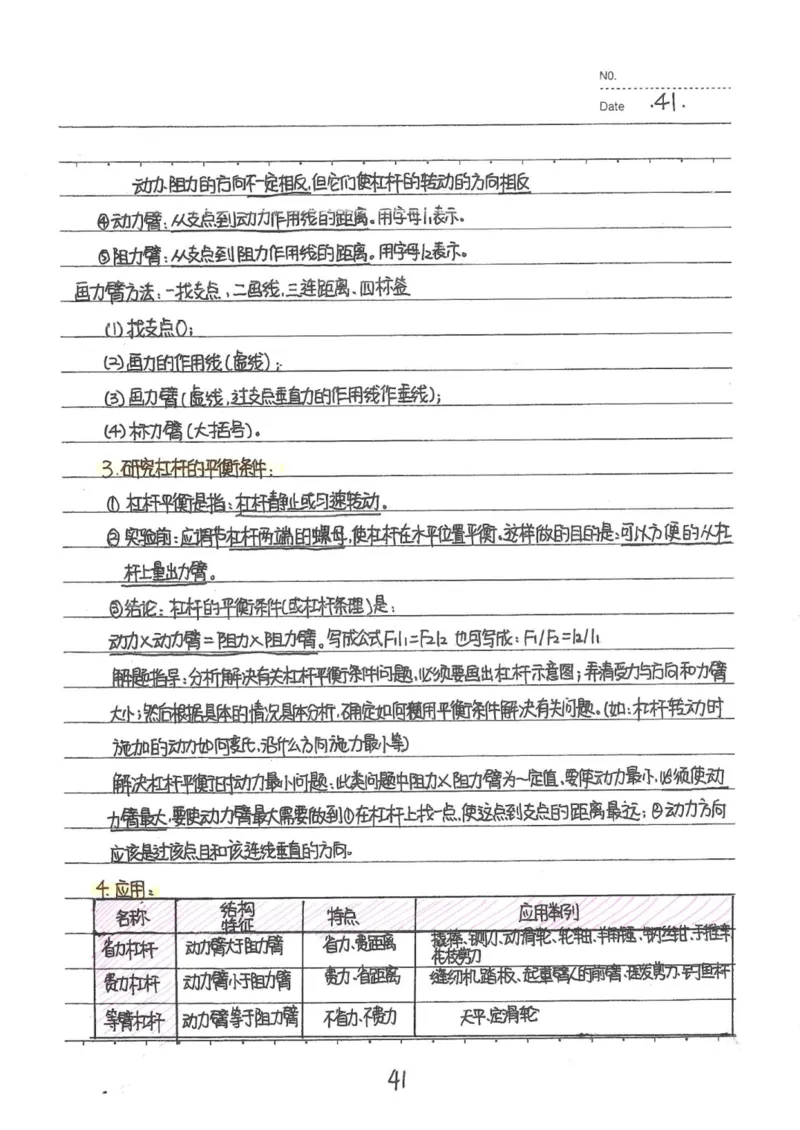 NO.
Date .41.
动力、阻力的方向不一定相反,但它们使杠杆的转动的方向相反
④动力臂:从支点到动力作用线的距离。用字母l1表示。
⑤阻力臂:从支点到阻力作用线的距离。用字母l2表示。
画力臂方法:一找支点,二画线,三连距离、四标签
(1)找支点O;
(2)画力的作用线(虚线);
(3)画力臂(虚线,过支点垂直力的作用线作垂线);
(4)标力臂(大括号)。
3.研究杠杆的平衡条件:
①杠杆平衡是指:杠杆静止或匀速转动。
②实验前:应调节杠杆两端的螺母,使杠杆在水平位置平衡。这样做的目的是:可以方便的从杠
杆上量出力臂。
③结论:杠杆的平衡条件(或杠杆条理)是:
动力×动力臂=阻力×阻力臂。写成公式F1l1=F2l2 也可写成:F1/F2=l2/l1
解题指导:分析解决有关杠杆平衡条件问题,必须要画出杠杆示意图;弄清受力与方向和力臂
大小;然后根据具体的情况具体分析,确定如何使用平衡条件解决有关问题。(如:杠杆转动时
施加的动力如何变化,沿什么方向施力最小等)
解决杠杆平衡时动力最小问题:此类问题中阻力×阻力臂为一定值,要使动力最小,必须使动
力臂最大,要使动力臂最大需要做到①在杠杆上找一点,使这点到支点的距离最远;②动力方向
应该是过该点且和该连线垂直的方向。
4.应用:
名称 结构特征 特点 应用举例
省力杠杆 动力臂大于阻力臂 省力、费距离 撬棒、铡刀、动滑轮、轮轴、羊角锤、钢丝钳、手推车
花枝剪刀
费力杠杆 动力臂小于阻力臂 费力、省距离 缝纫机踏板、起重臂人的前臂、理发剪刀、钓鱼杆
等臂杠杆 动力臂等于阻力臂 不省力、不费力 天平、定滑轮
41